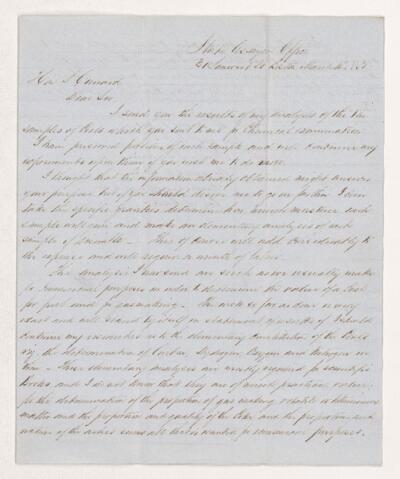 State Assayer's Office
Hon
Dear Sir
I send you the results of my analysis of the ten
samples of Coals which you sent to me for Chemical examination
I have preserved portions of each sample and will continue my
experiments upon them if you wish me to do more.
I thought that the information already obtained might answer
your purpose but if you should desire me to go further I can
take the specific gravities determine how much moisture each
sample will and make an elementary analysis of each
sample if desirable. This of course will add considerably to
the expense and will require a month of labor.
The analyses I have send are such as are usually made
for Commercial purposes in order to determine the value of a Coal
for fuel and for gas making. The work so far as done is very
exact and will stand by itself as a statement of results if I should
continue my researches in the elementary constitution of the Coals
viz. the determination of Carbon, Hydrogen Oxygen and Nitrogen in
them. These elementary analyses are mostly required for scientific
Books and I do not know that they are of much practical value,
for the determination of the proportion of gas making volatile or bituminous
matter and the proportion and quality of the Coke and the proportion and
nature of the ashes seems all that is wanted for commercial purposes.